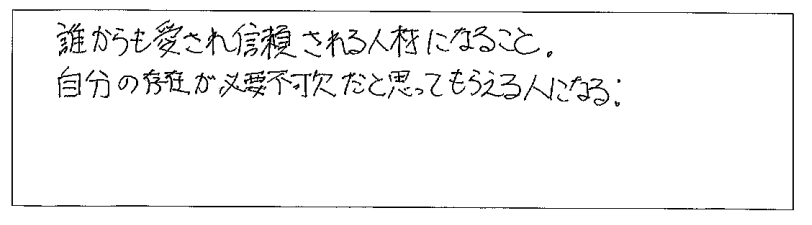 誰からも愛され信頼される人材になること。
自分の存在が必要不可欠だと思ってもらえる人になる。